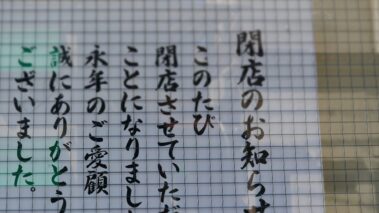 閉店のお知らせ
このたび
閉店させていただ
ことになりまし
永年のご愛顧
誠にありがとう
ございました。